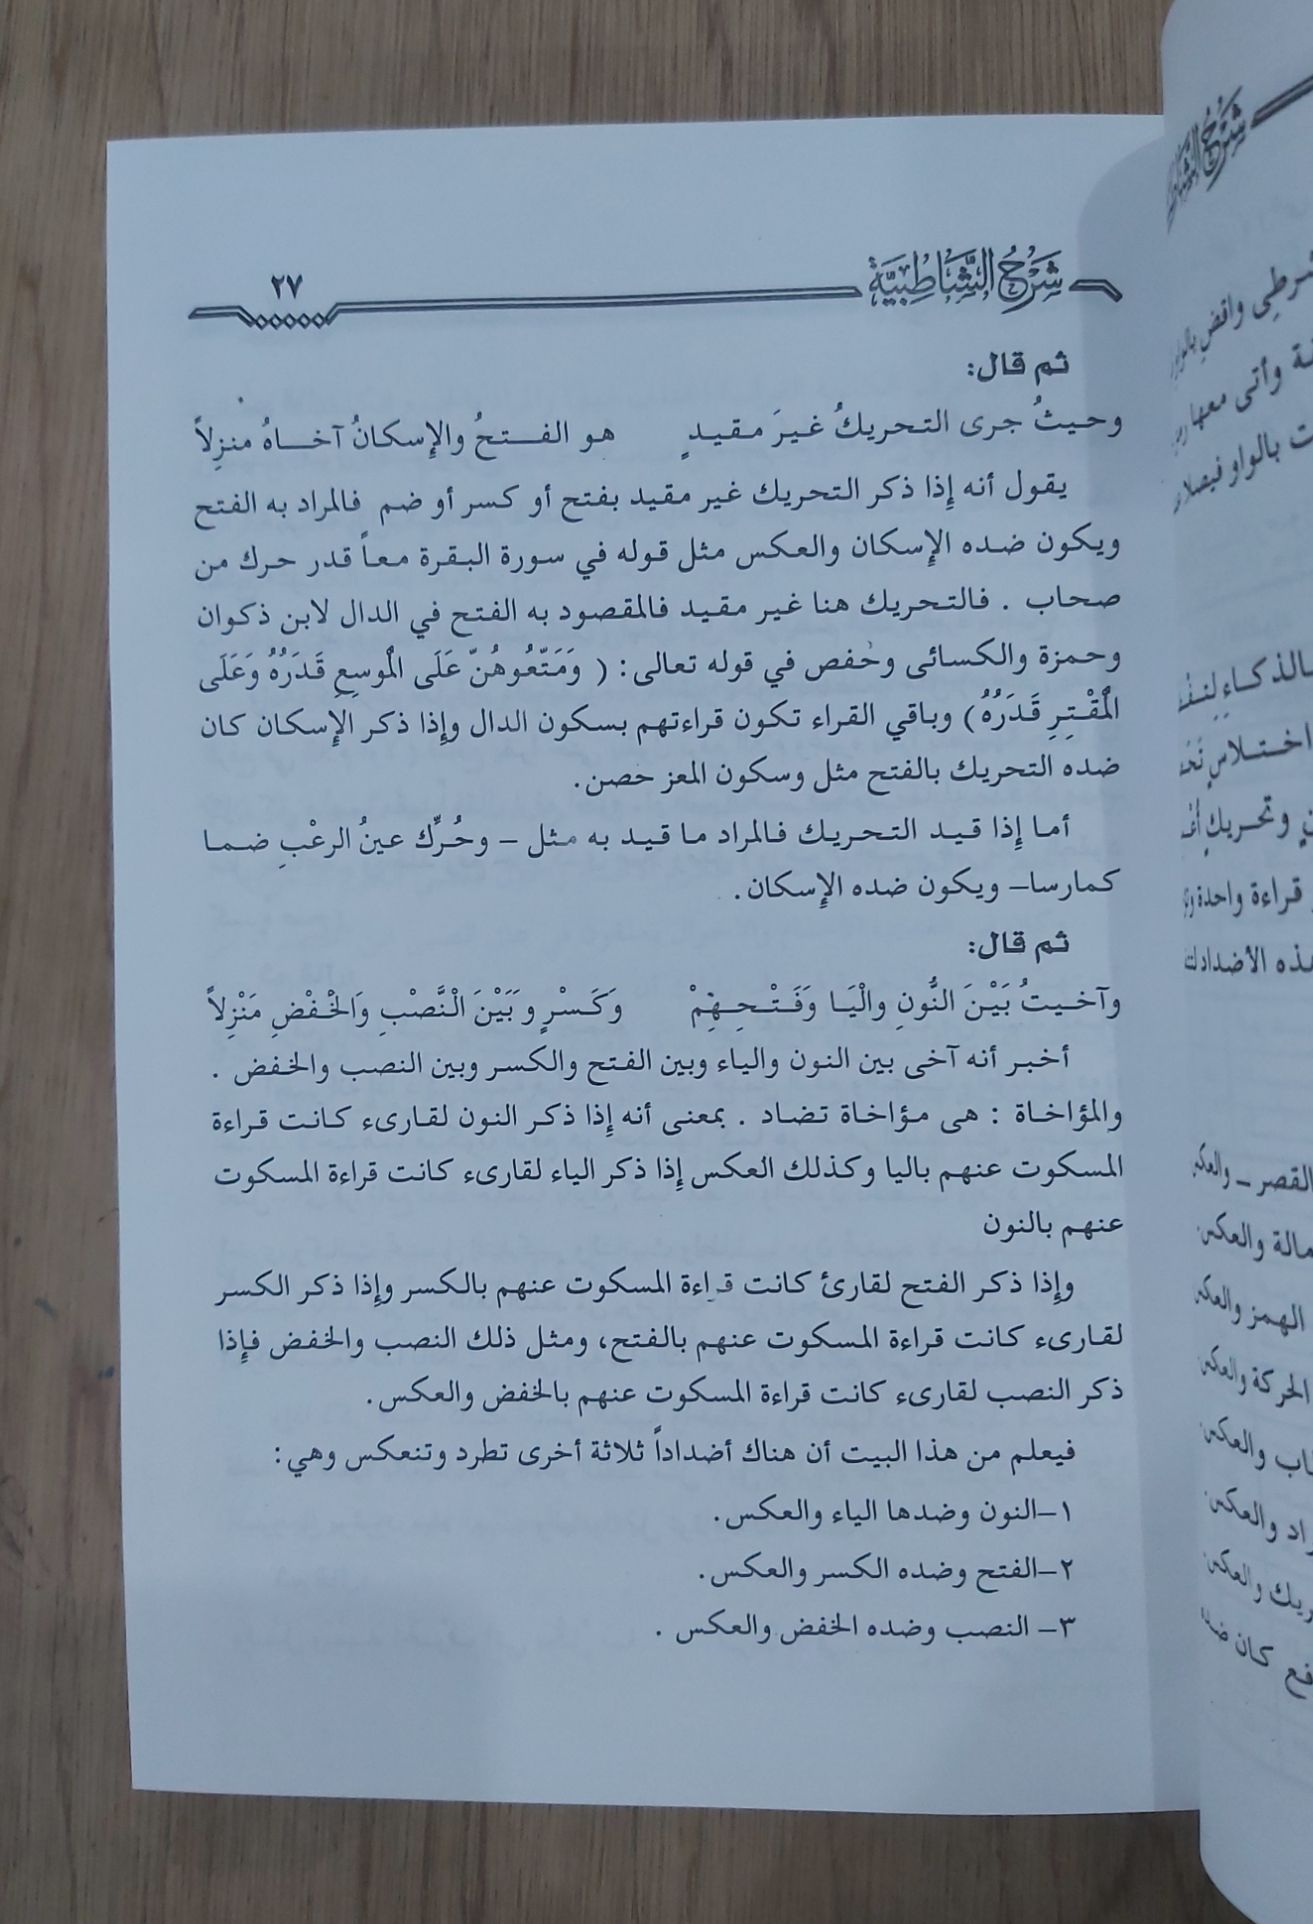 شَرْحُ الشَّاطِبِيَّةِ
٢٧
ثم قال:
وحيثُ جرى التحريكُ غيرَ مقيدٍ هو الفتحُ والإِسكانُ آخاهُ منزِلاً
يقول أنه إِذا ذكر التحريك غير مقيد بفتح أو كسر أو ضم فالمراد به الفتح
ويكون ضده الإِسكان والعكس مثل قوله في سورة البقرة معاً قدر حرك من
صحاب . فالتحريك هنا غير مقيد فالمقصود به الفتح في الدال لابن ذكوان
وحمزة والكسائى وحفص في قوله تعالى: ( وَمَتّعُوهُنّ عَلَى الْمُوسِعِ قَدَرُهُ وَعَلَى
الْمُقْتِرِ قَدَرُهُ) وباقي القراء تكون قراءتهم بسكون الدال وإِذا ذكر الإِسكان كان
ضده التحريك بالفتح مثل وسكون المعز حصن.
أما إِذا قيد التحريك فالمراد ما قيد به مثل – وحُرِّك عينُ الرعْبِ ضما
كمارسا– ويكون ضده الإِسكان.
ثم قال:
وآخيتُ بَيْنَ النُّونِ والْيَا وَفَتْحِهِمْ وَكَسْرٍ وَبَيْنَ الْنَّصْبِ وَالْخَفْضِ مَنْزِلاً
أخبر أنه آخى بين النون والياء وبين الفتح والكسر وبين النصب والخفض .
والمؤاخاة : هى مؤاخاة تضاد . بمعنى أنه إِذا ذكر النون لقارىء كانت قراءة
المسكوت عنهم باليا وكذلك العكس إِذا ذكر الياء لقارىء كانت قراءة المسكوت
عنهم بالنون
وإِذا ذكر الفتح لقارئ كانت قراءة المسكوت عنهم بالكسر وإِذا ذكر الكسر
لقارىء كانت قراءة المسكوت عنهم بالفتح، ومثل ذلك النصب والخفض فإِذا
ذكر النصب لقارىء كانت قراءة المسكوت عنهم بالخفض والعكس.
فيعلم من هذا البيت أن هناك أضداداً ثلاثة أخرى تطرد وتنعكس وهي:
١–النون وضدها الياء والعكس.
٢–الفتح وضده الكسر والعكس.
٣– النصب وضده الخفض والعكس .